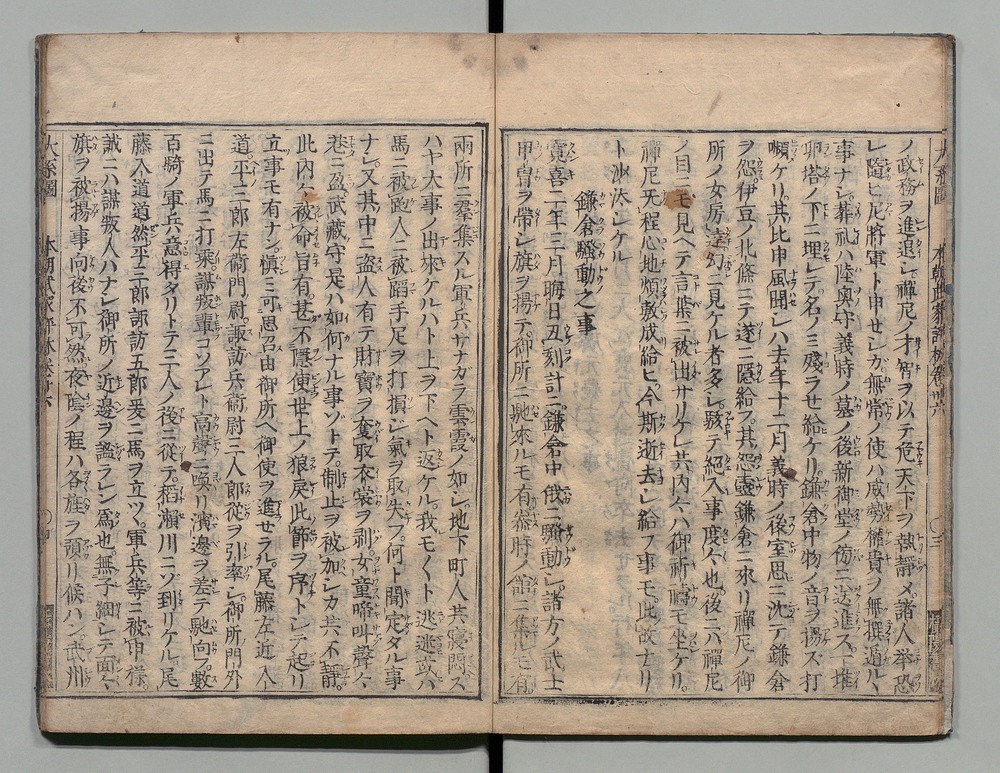 ノ政務ヲ進退シ禅尼ノ才智ヲ以テ危天下ヲ執静メ諸人挙恐
レ随ヒ尼將軍ト申セシカ無常ノ使ハ威勢權貴ヲ無撰遁ル丶
事ナシ葬礼ハ陸奥守義時ノ墓ノ後新御堂ノ傍ニ送進ス一堆
卵塔ノ下ニ埋レテ名ノミ残ラセ給ケリ鎌倉中物ノ音ヲ揚ズ打
嚬ケリ其比申風聞シハ去年十二月義時ノ後室思ニ沈テ鎌倉
ヲ怨伊豆ノ北條ニテ遂ニ隠給フ其怨霊鎌倉ニ來リ禪尼ノ御
所ノ女房夢幻ニ見ケル者多シ駭テ絶入事度々也後ニハ禪尼
ノ目ニモ見ヘテ言葉ニ被出サリケレ共内々ハ御祈祷モ坐ケリ
禪尼旡程心地煩敷成給ヒ今斯逝去シ給フ事モ此故ナリ
ト沙汰シケル
鎌倉騒動之事
寛喜二年三月晦日丑刻計ニ鎌倉中俄ニ騒動シ諸方ノ武士
甲冑ヲ帯シ旗ヲ揚テ御所ニ馳來ルモ有泰時ノ舘ニ集ルモ有
兩所ニ羣集スル軍兵サナガラ雲霞ノ如シ地下町人共寝悶ス
ハヤ大事ノ出來ケルハト上ヲ下ヘト返ケル我モ〱ト逃迯或ハ
馬ニ被跑人ニ被蹈手足ヲ打損シ氣ヲ取失フ何ト聞定タル事
ナシ又其中ニ盗人有テ財寳ヲ奪取衣裳ヲ剥女童啼叫聲々
巷ニ盈武藏守是ハ如何ナル事ゾトテ制止ヲ被加シカ共不静
此内々被命旨有甚不隠便世上ノ狼戻此節ヲ序トシテ起リ
立事モ有ナン慎ミ可思召由御所ヘ御使ヲ進セラル尾藤左近入
道平三郎左衞門尉諏訪兵衞尉三人郎從ヲ引率シ御所門外
ニ出テ馬ニ打乘謀叛輩コソアレト高聲ニ喚リ濱邊ヲ差テ馳向フ數
百騎ノ軍兵意得タリトテ三人ノ後ニ從テ稻瀬川ニゾ到リケル尾
藤入道道然平三郎諏訪五郎爰ニ馬ヲ立ツ軍兵等ニ被申様
誠ニハ謀叛人ハナシ御所ノ近邊ヲ謐ラン爲也無子細シテ面々
旗ヲ被揚事向後不可然夜陰ノ程ハ各旌ヲ預リ候ハン武州